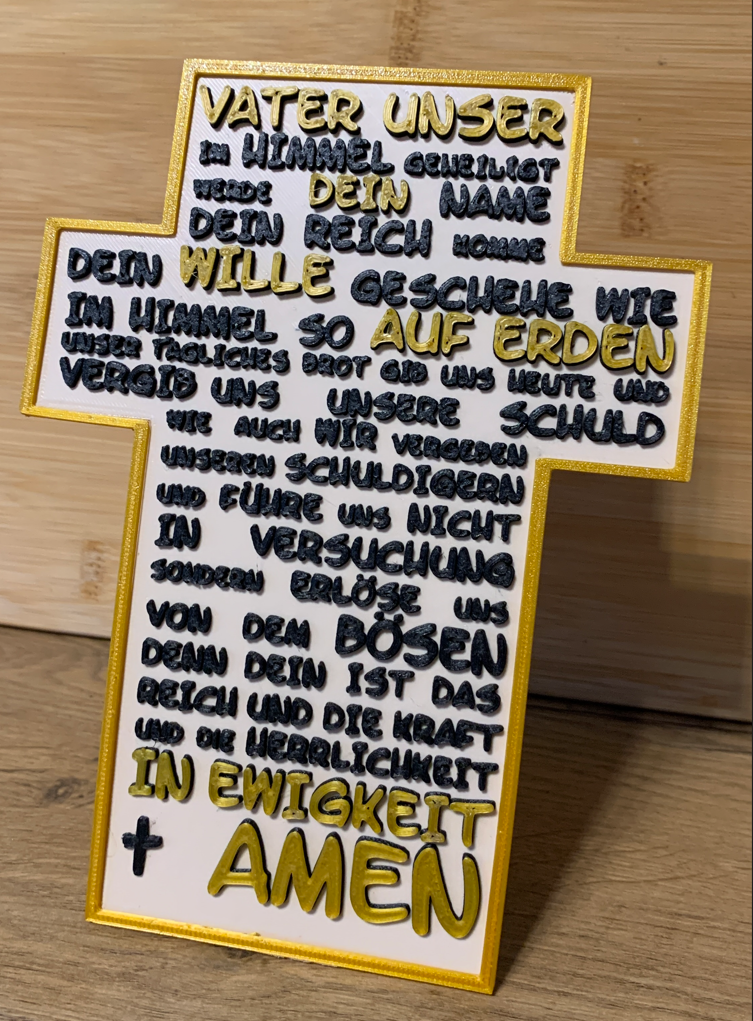 VATER UNSER
IM HIMMEL GEHEILIGT
WERDE DEIN NAME
DEIN REICH KOMME
DEIN WILLE GESCHEHE WIE
IM HIMMEL SO AUF ERDEN
UNSER TÄGLICHES BROT GIB UNS HEUTE UND
VERGIB UNS UNSERE SCHULD
WIE AUCH WIR VERGEBEN
UNSEREN SCHULDIGERN
UND FÜHRE UNS NICHT
IN VERSUCHUNG
SONDERN ERLÖSE UNS
VON DEM BÖSEN
DENN DEIN IST DAS
REICH UND DIE KRAFT
UND DIE HERRLICHKEIT
IN EWIGKEIT
AMEN